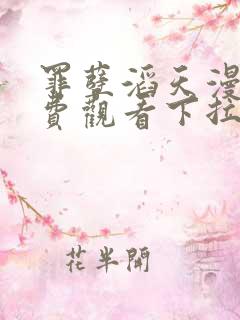 罪孽滔天漫
費觀看下拉
花半開